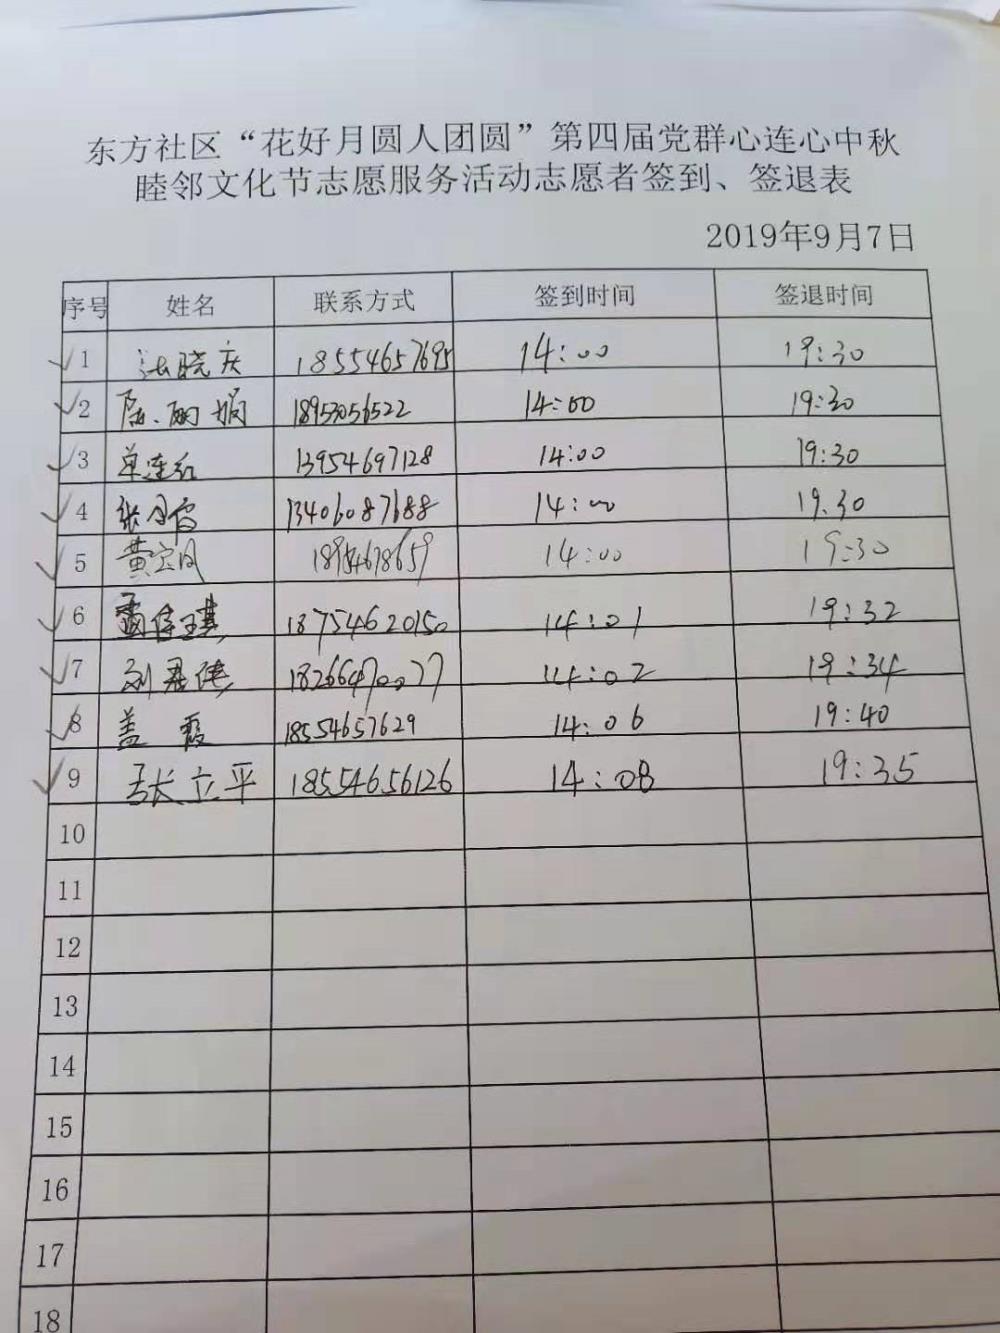 东方社区“花好月圆人团圆”第四届党群心连心中秋
睦邻文化节志愿服务活动志愿者签到、签退表
2019年9月7日
序号 姓名 联系方式 签到时间 签退时间
1 晓庆 18554657695 14:00 19:30
2 陈丽娟 18953056522 14:00 19:30
3 单连红 13954697128 14:00 19:30
4 张月霞 13406087688 14:00 19:30
5 黄宝凤 14:00 19:30
6 18754620150 14:01 19:32
7 刘 18266470077 14:02 19:34
8 盖霞 18554657629 14:06 19:40
9 张立平 18554656126 14:08 19:35
10
11
12
13
14
15
16
17
18